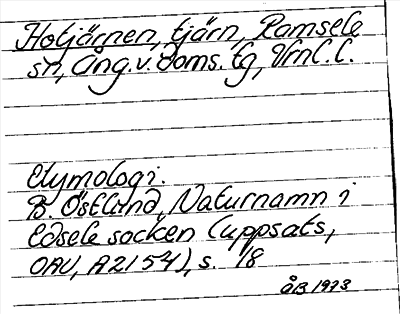 Hotjärnen, tjärn, Ramsele
sn, Ång.v. doms. tg, Vrnl. l.
Etymologi.
B. Östlund, Naturnamn i
Edsele socken (uppsats,
OAU, A2154), s. 18
åB 1973